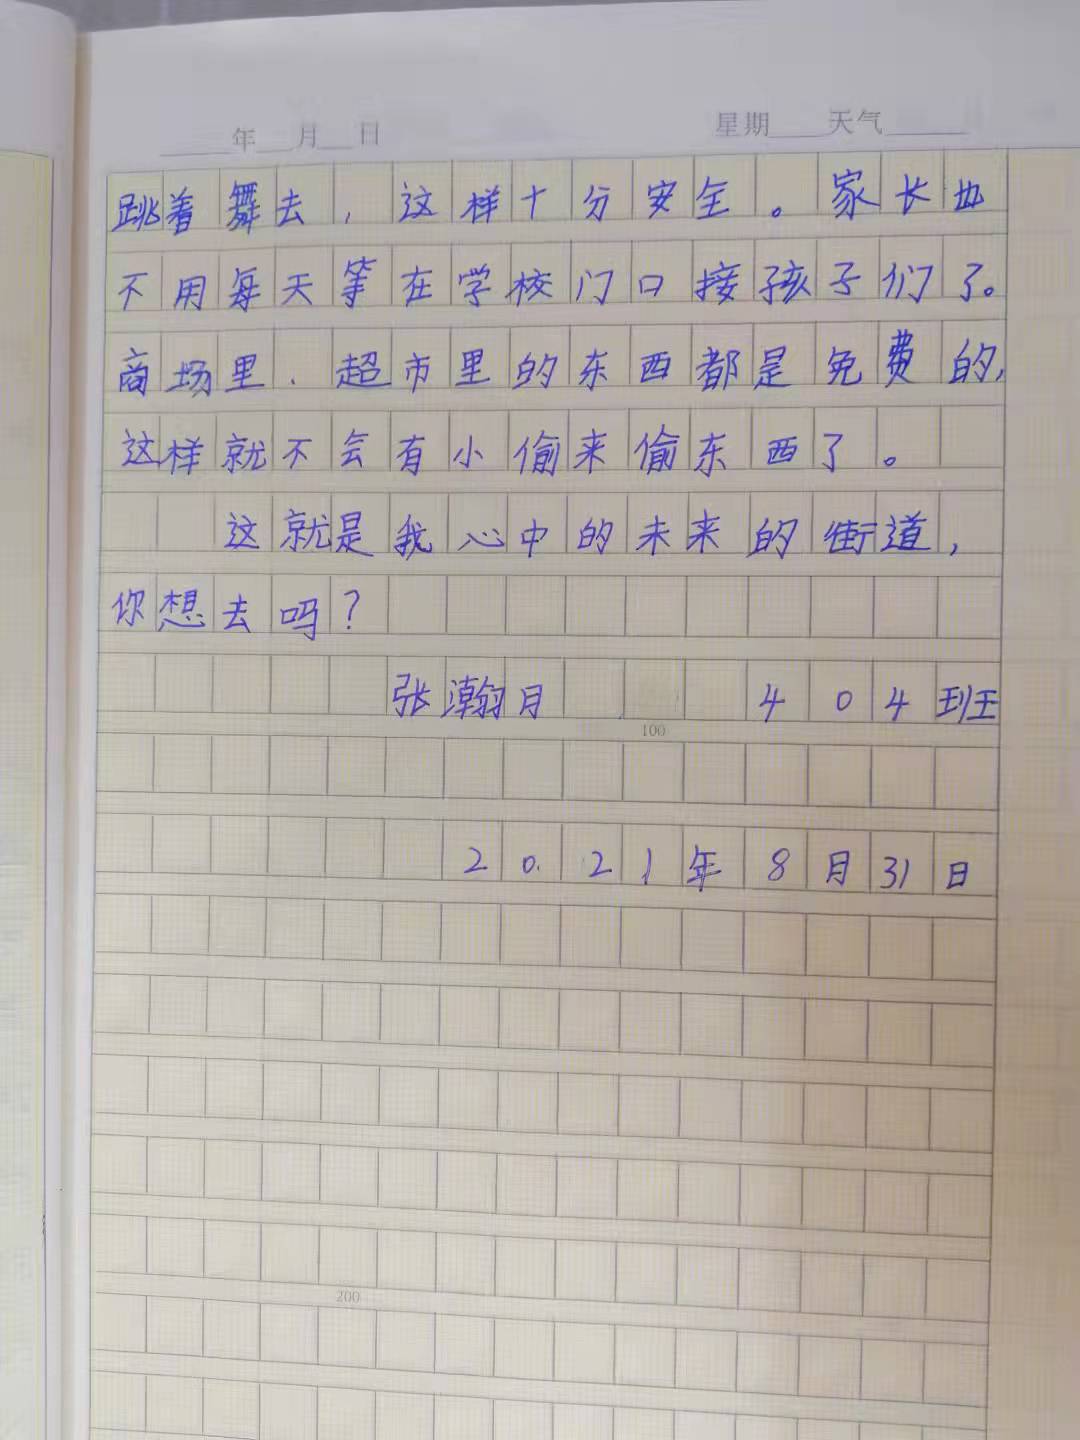 年 月 日 星期 天气
跳着舞去，这样十分安全。家长也
不用每天等在学校门口接孩子们了。
商场里、超市里的东西都是免费的,
这样就不会有小偷来偷东西了。
这就是我心中的未来的街道,
你想去吗?
张瀚月 404班
100
2021年8月31日
200